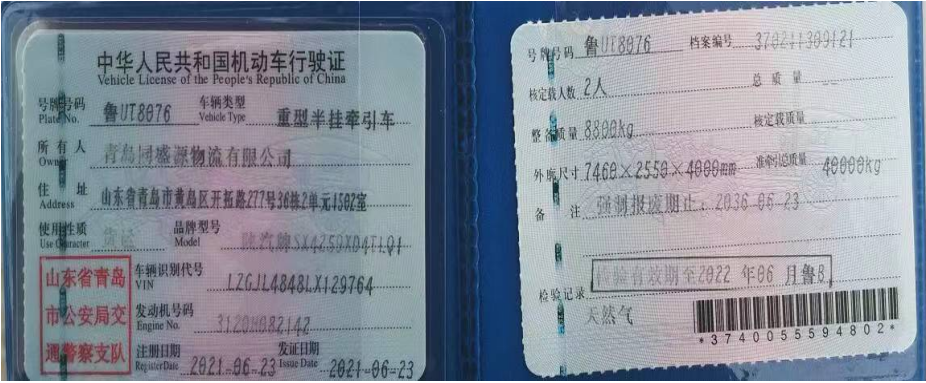 中华人民共和国机动车行驶证
Vehicle License of the People's Republic of China
号牌号码 Plate No. 鲁UT8076 车辆类型 Vehicle Type 重型半挂牵引车
所有人 Owner 青岛同盛源物流有限公司
住址 Address 山东省青岛市黄岛区开拓路277号36栋2单元1502室
使用性质 Use Character 货运 品牌型号 Model 陕汽牌SX4259XD4TLQ1
山东省青岛
市公安局交
通警察支队
车辆识别代号 VIN LZGJL4848LX129764
发动机号码 Engine No. 3120H082142
注册日期 Register Date 2021-06-23 发证日期 Issue Date 2021-06-23
号牌号码 鲁UT8076 档案编号 370211309121
核定载人数 2人 总质量 --
整备质量 8800kg 核定载质量 --
外廓尺寸 7460×2550×4000mm 准牵引总质量 40000kg
备注 强制报废期止：2036-06-23
检验记录 检验有效期至2022年06月鲁B
天然气
*3740055594802*